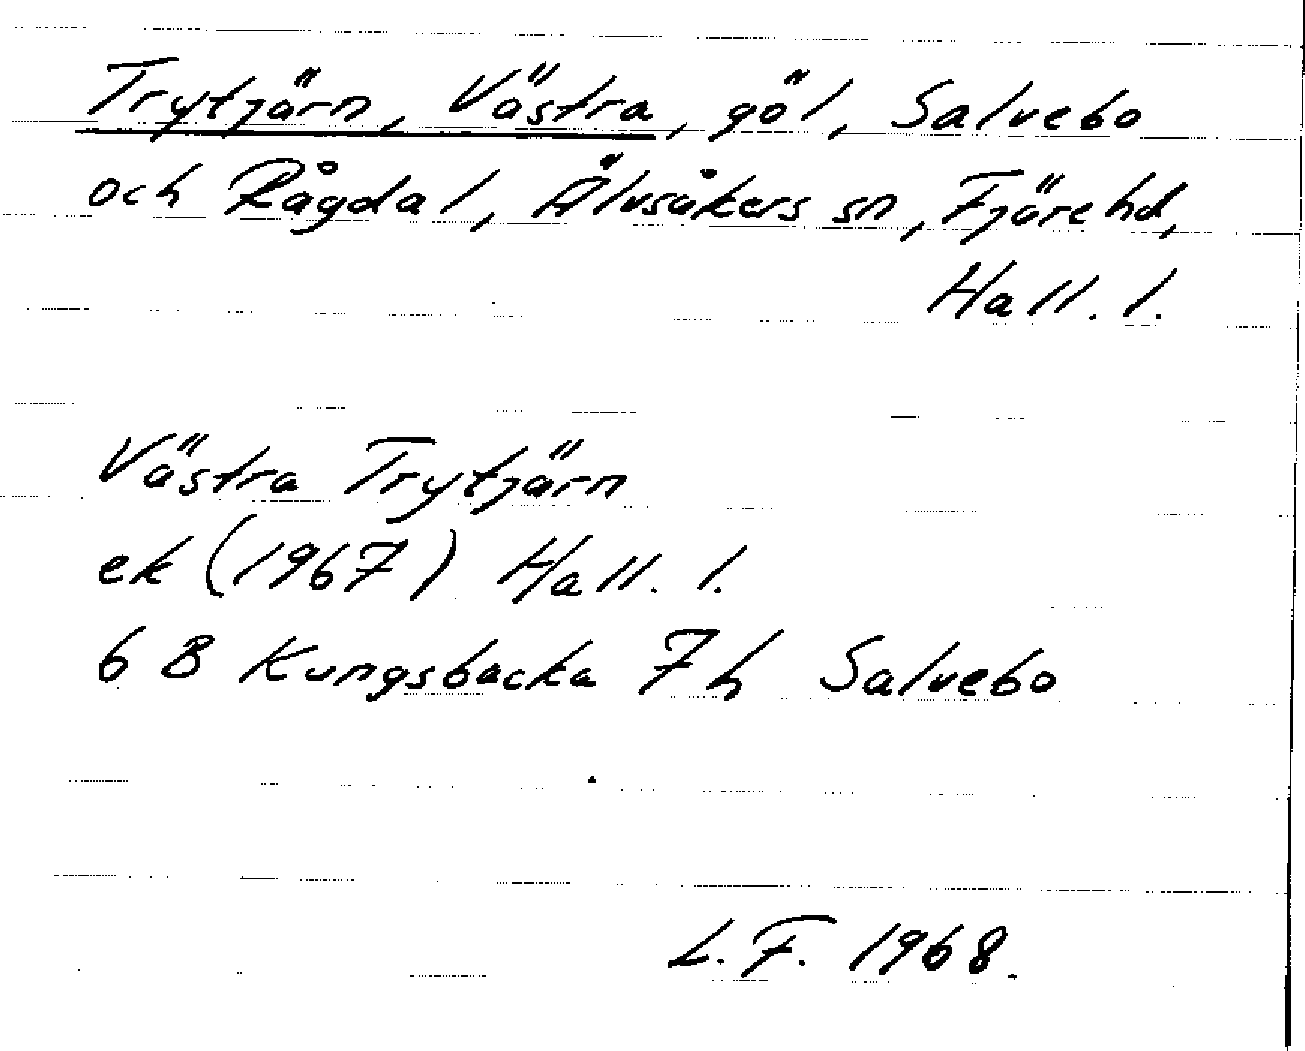 Trytjärn, Västra, göl, Salvebo
och Rågdal, Älvsåkers sn, Fjäre hd,
Hall. l.
Västra Trytjärn
ek (1967) Hall. l.
6 B Kungsbacka 7 h Salvebo
L. F. 1968.